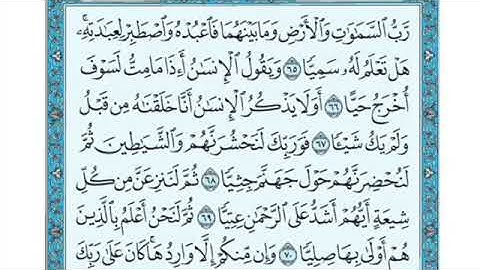 رَّبُّ ٱلسَّمَٰوَٰتِ وَٱلۡأَرۡضِ وَمَا بَيۡنَهُمَا فَٱعۡبُدۡهُ وَٱصۡطَبِرۡ لِعِبَٰدَتِهِۦۚ
هَلۡ تَعۡلَمُ لَهُۥ سَمِيّٗا ٦٥ وَيَقُولُ ٱلۡإِنسَٰنُ أَءِذَا مَا مِتُّ لَسَوۡفَ
أُخۡرَجُ حَيًّا ٦٦ أَوَلَا يَذۡكُرُ ٱلۡإِنسَٰنُ أَنَّا خَلَقۡنَٰهُ مِن قَبۡلُ
وَلَمۡ يَكُ شَيۡـٔٗا ٦٧ فَوَرَبِّكَ لَنَحۡشُرَنَّهُمۡ وَٱلشَّيَٰطِينَ ثُمَّ
لَنُحۡضِرَنَّهُمۡ حَوۡلَ جَهَنَّمَ جِثِيّٗا ٦٨ ثُمَّ لَنَنزِعَنَّ مِن كُلِّ
شِيعَةٍ أَيُّهُمۡ أَشَدُّ عَلَى ٱلرَّحۡمَٰنِ عِتِيّٗا ٦٩ ثُمَّ لَنَحۡنُ أَعۡلَمُ بِٱلَّذِينَ
هُمۡ أَوۡلَىٰ بِهَا صِلِيّٗا ٧٠ وَإِن مِّنكُمۡ إِلَّا وَارِدُهَاۚ كَانَ عَلَىٰ رَبِّكَ